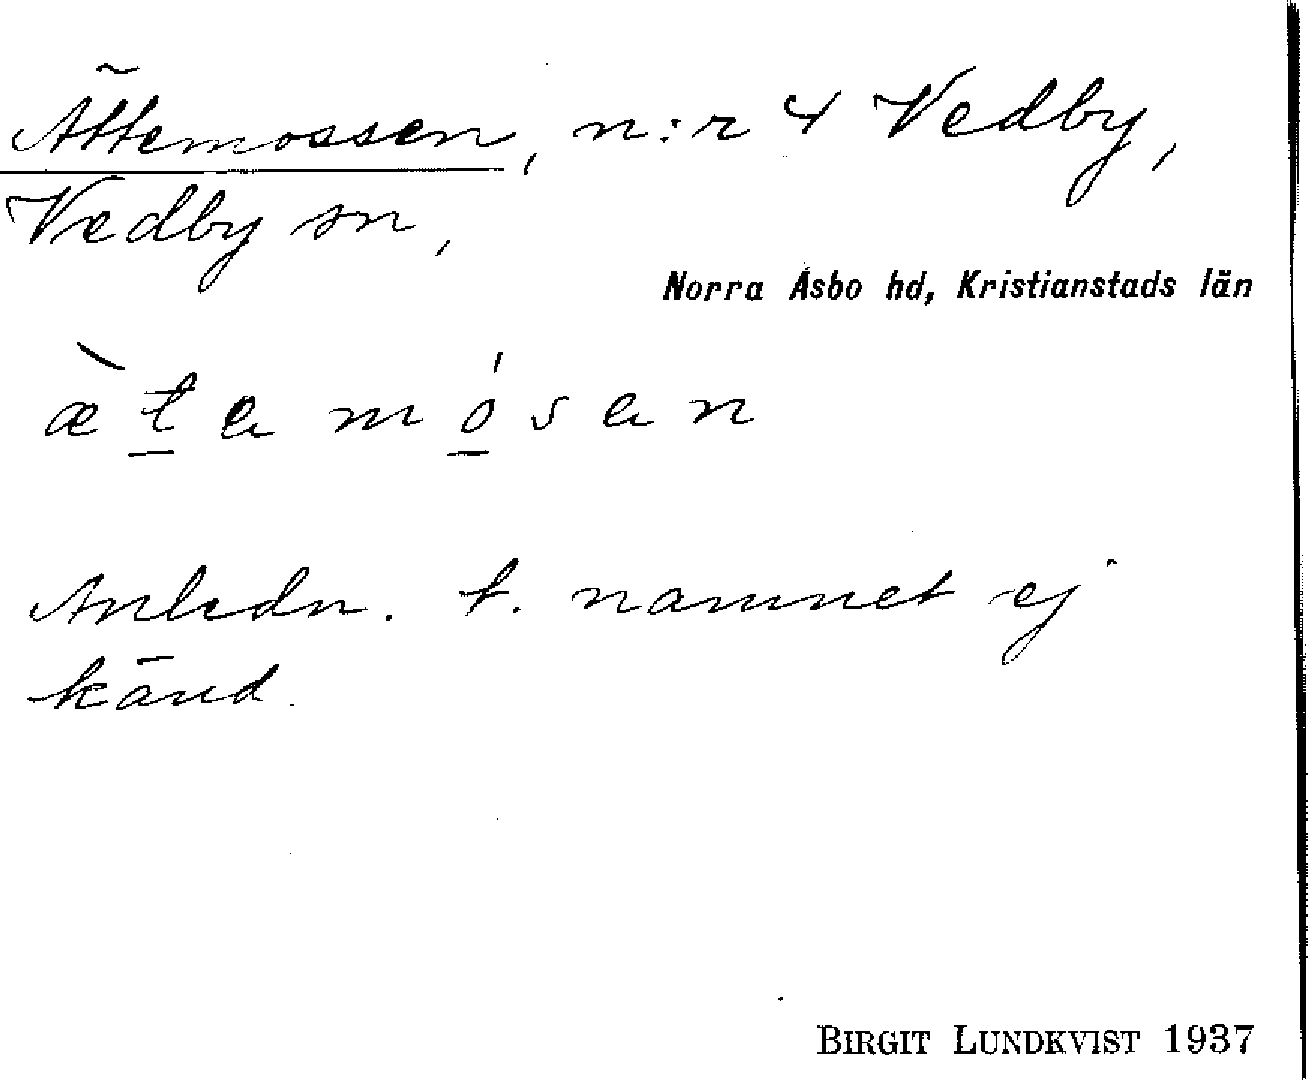 Ättemossen, n:r 4 Vedby,
Vedby sn,
Norra Åsbo hd, Kristianstads län
æ̀t̲a mó̲san
Anledn. t. namnet ej
känd.
BIRGIT LUNDKVIST 1937